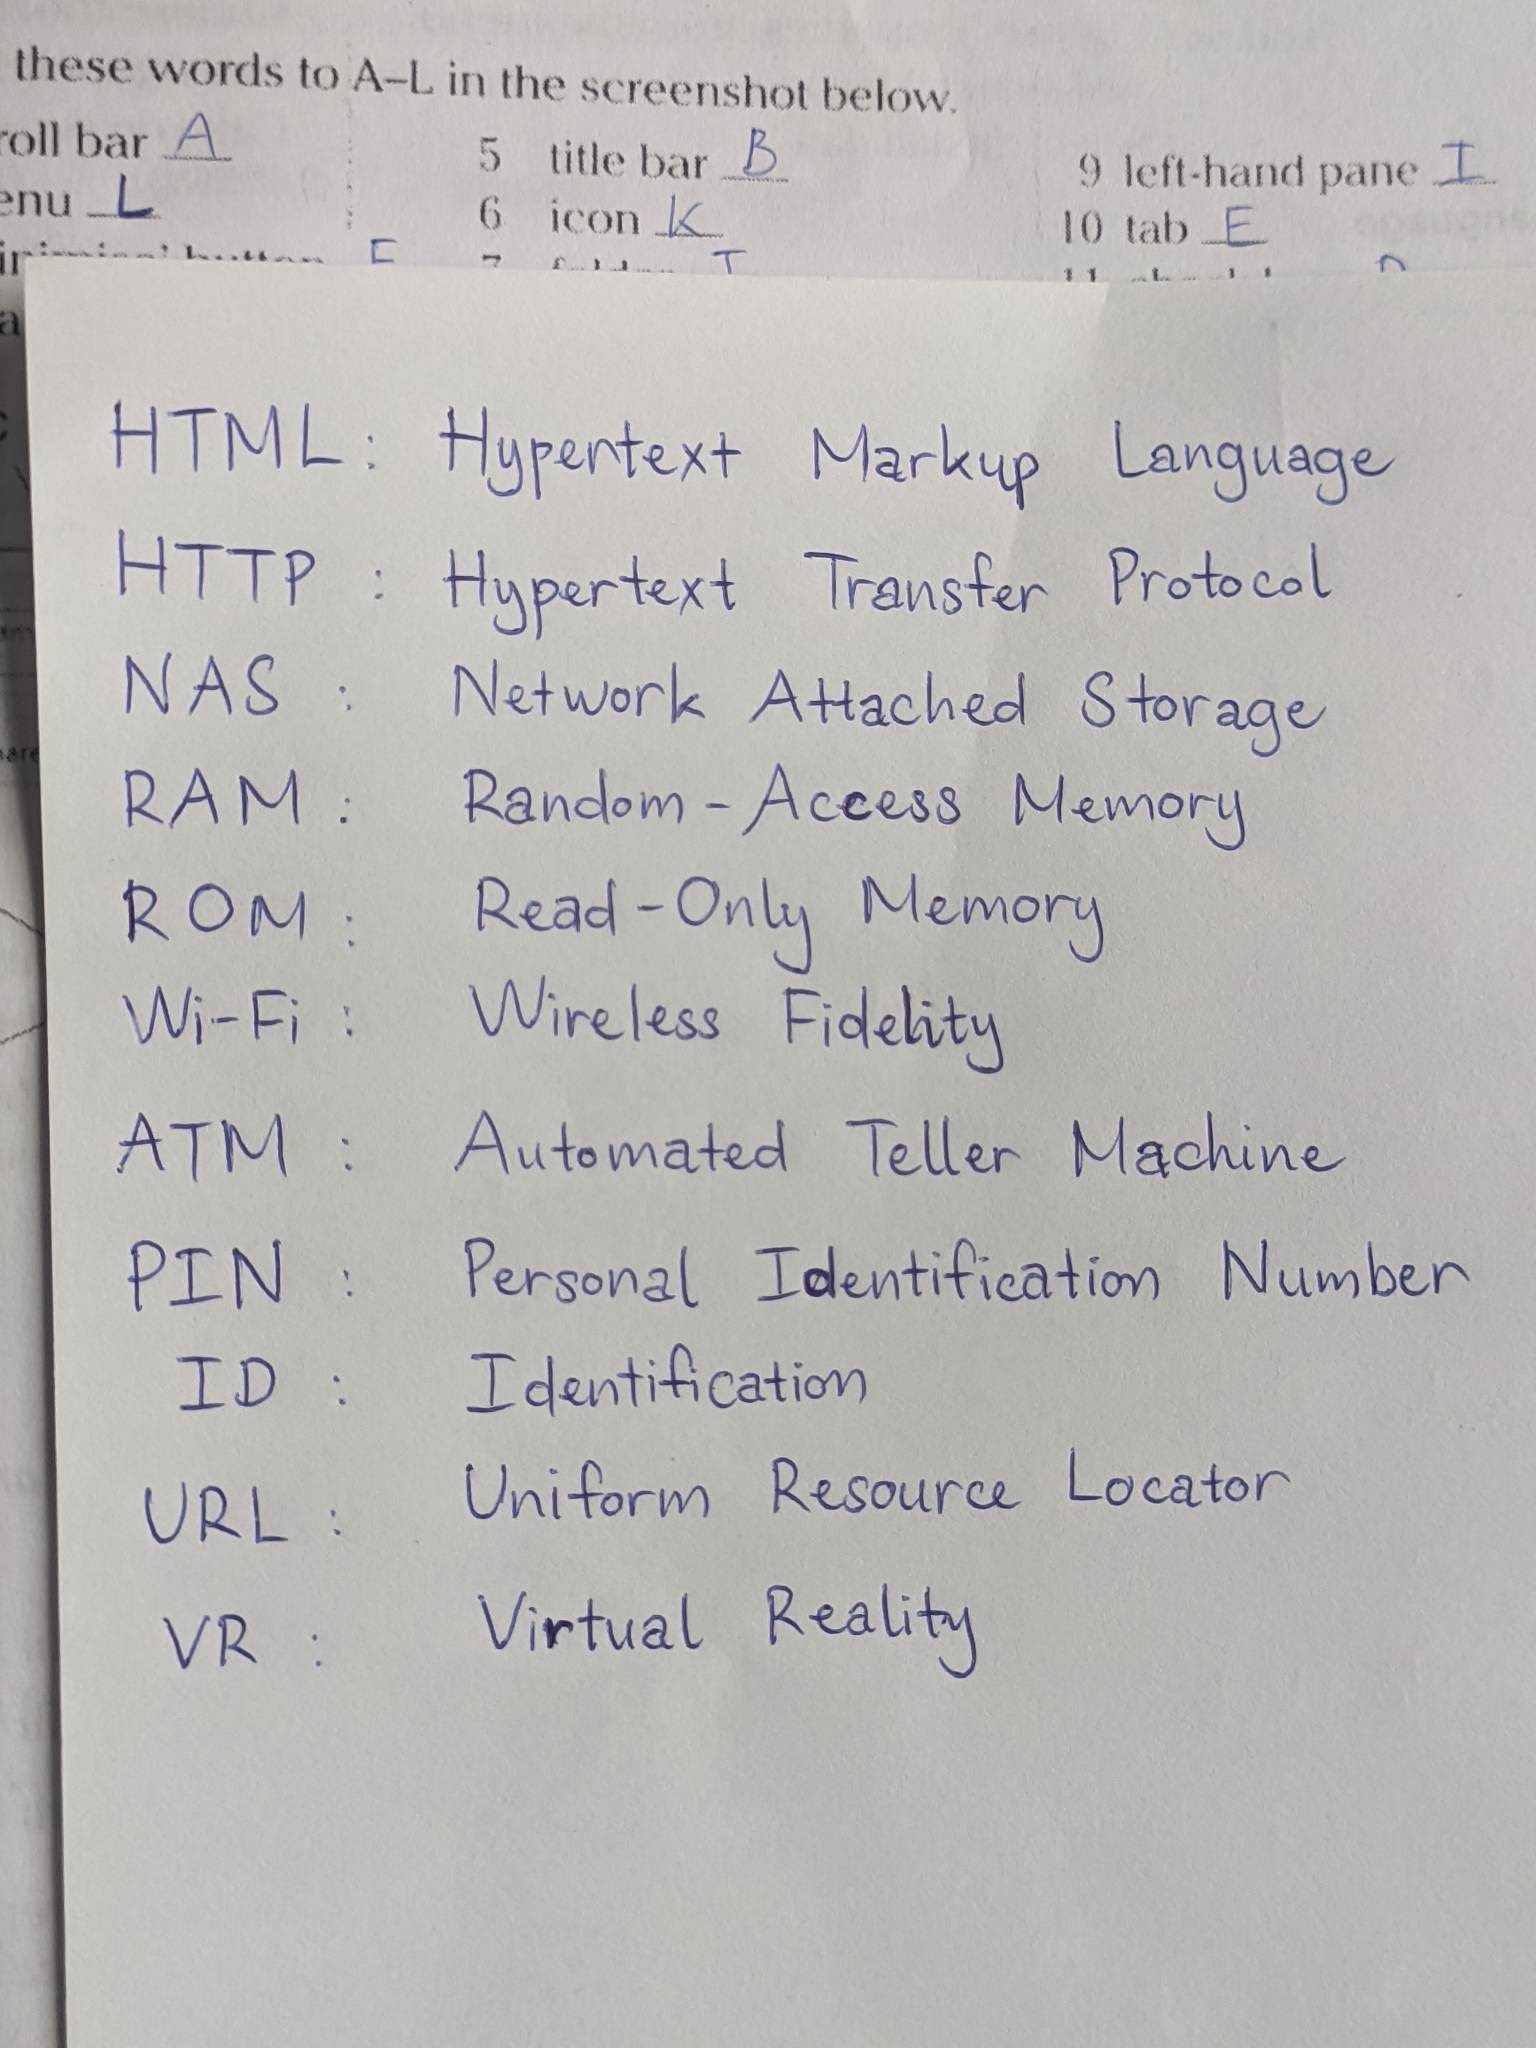 these words to A–L in the screenshot below.
roll bar A 5 title bar B 9 left-hand pane I
enu L 6 icon K 10 tab E
button
HTML : Hypertext Markup Language
HTTP : Hypertext Transfer Protocol
NAS : Network Attached Storage
RAM : Random-Access Memory
ROM : Read-Only Memory
Wi-Fi : Wireless Fidelity
ATM : Automated Teller Machine
PIN : Personal Identification Number
ID : Identification
URL : Uniform Resource Locator
VR : Virtual Reality